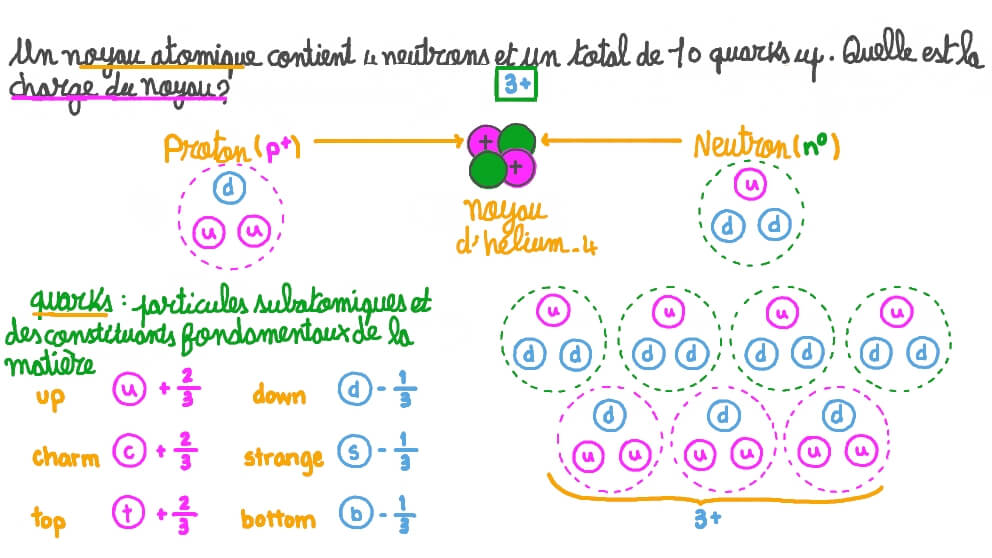 Un noyau atomique contient 4 neutrons et un total de 10 quarks up. Quelle est la
charge du noyau?
3+
Proton (p+)
Neutron (n0)
+
+
d
u u
u
d d
noyau
d'hélium-4
quarks : particules subatomiques et
des constituants fondamentaux de la
matière
up u + 2/3 down d - 1/3
charm c + 2/3 strange s - 1/3
top t + 2/3 bottom b - 1/3
u u u u
d d d d d d d d
d d d
u u u u u u
3+